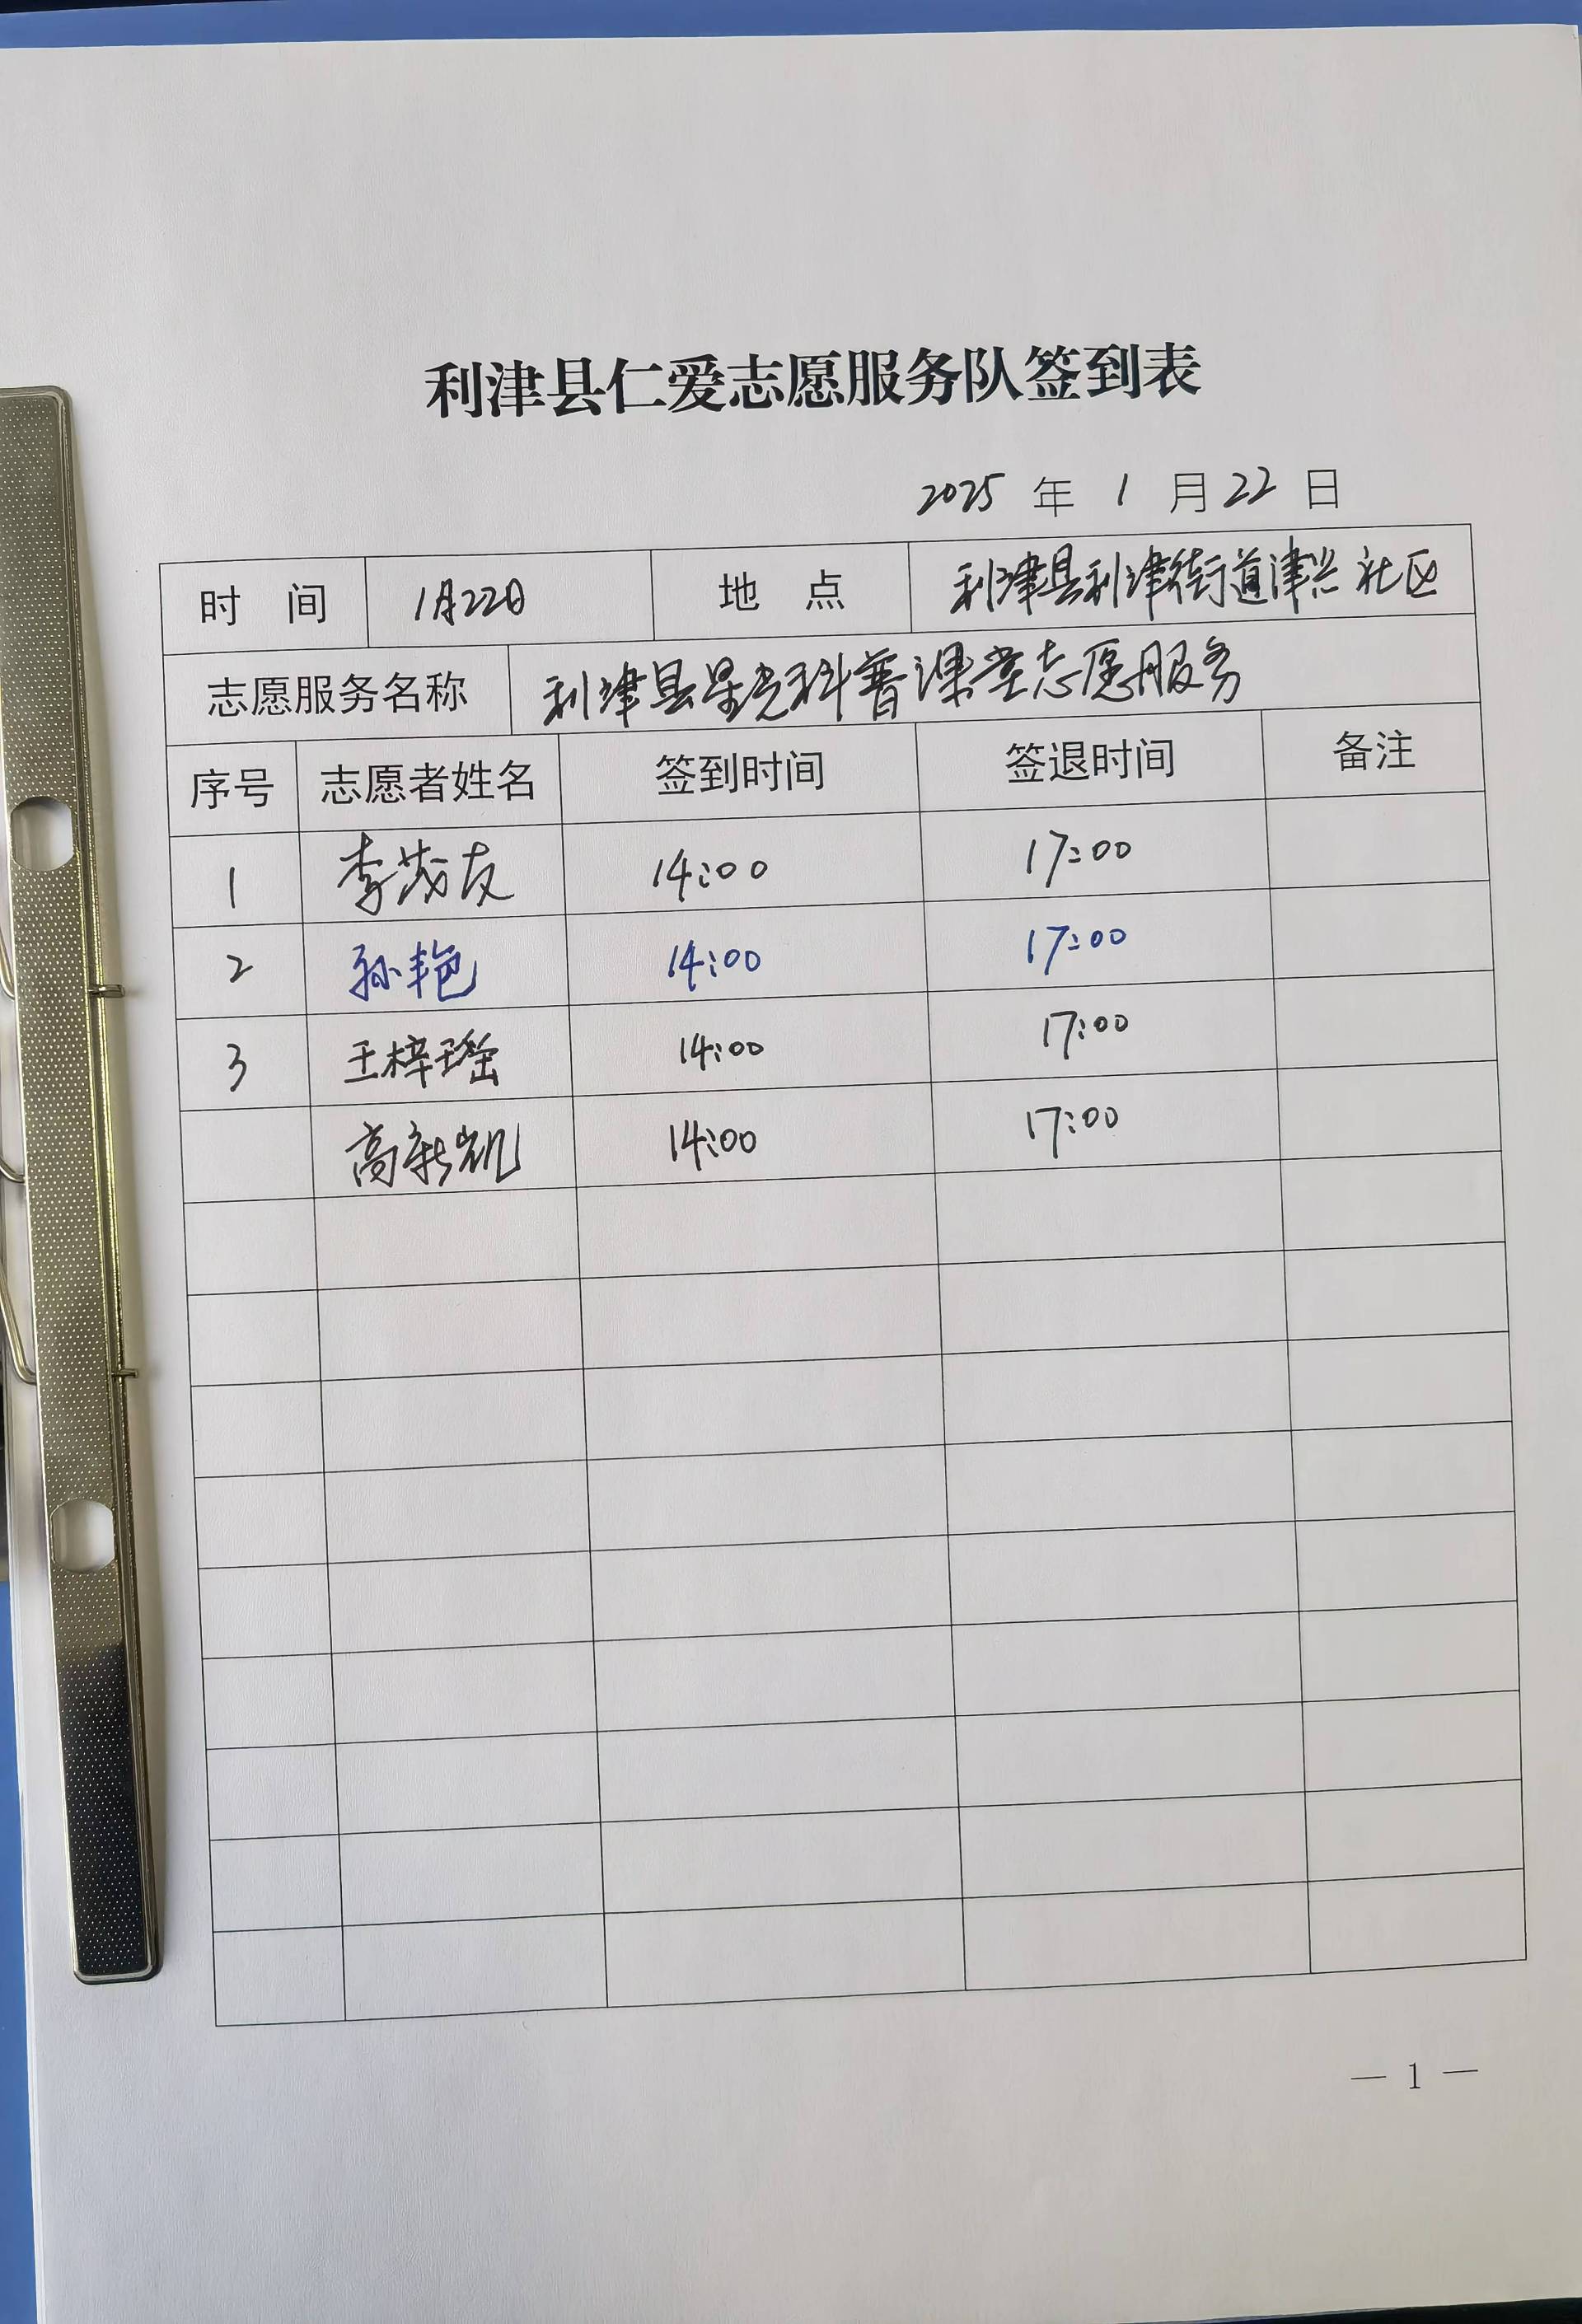 利津县仁爱志愿服务队签到表
2025 年 1 月 22 日
时 间 1月22日 地 点 利津县利津街道津兴社区
志愿服务名称 利津县星光科普课堂志愿服务
序号 志愿者姓名 签到时间 签退时间 备注
1 李茂友 14:00 17:00
2 孙艳 14:00 17:00
3 王梓瑶 14:00 17:00
高新凯 14:00 17:00
— 1 —